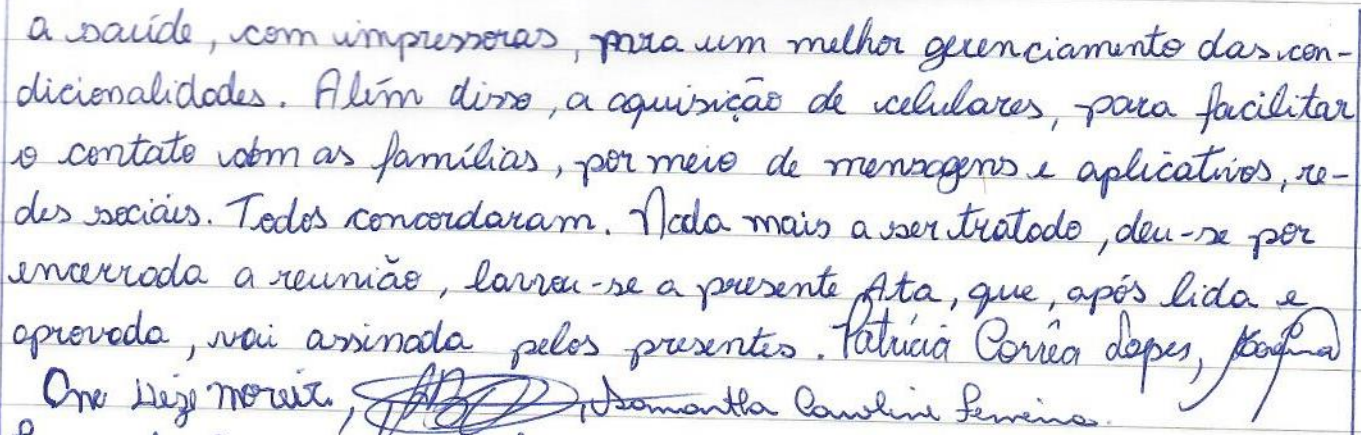 a saúde, com impressoras, para um melhor gerenciamento das con-
dicionalidades. Além disso, a aquisição de celulares, para facilitar
o contato com as famílias, por meio de mensagens e aplicativos, re-
des sociais. Todos concordaram. Nada mais a ser tratado, deu-se por
encerrada a reunião, lavrou-se a presente Ata, que, após lida e
aprovada, vai assinada pelos presentes. Patrícia Corrêa Lopes,
Samantha Caroline Ferreira.